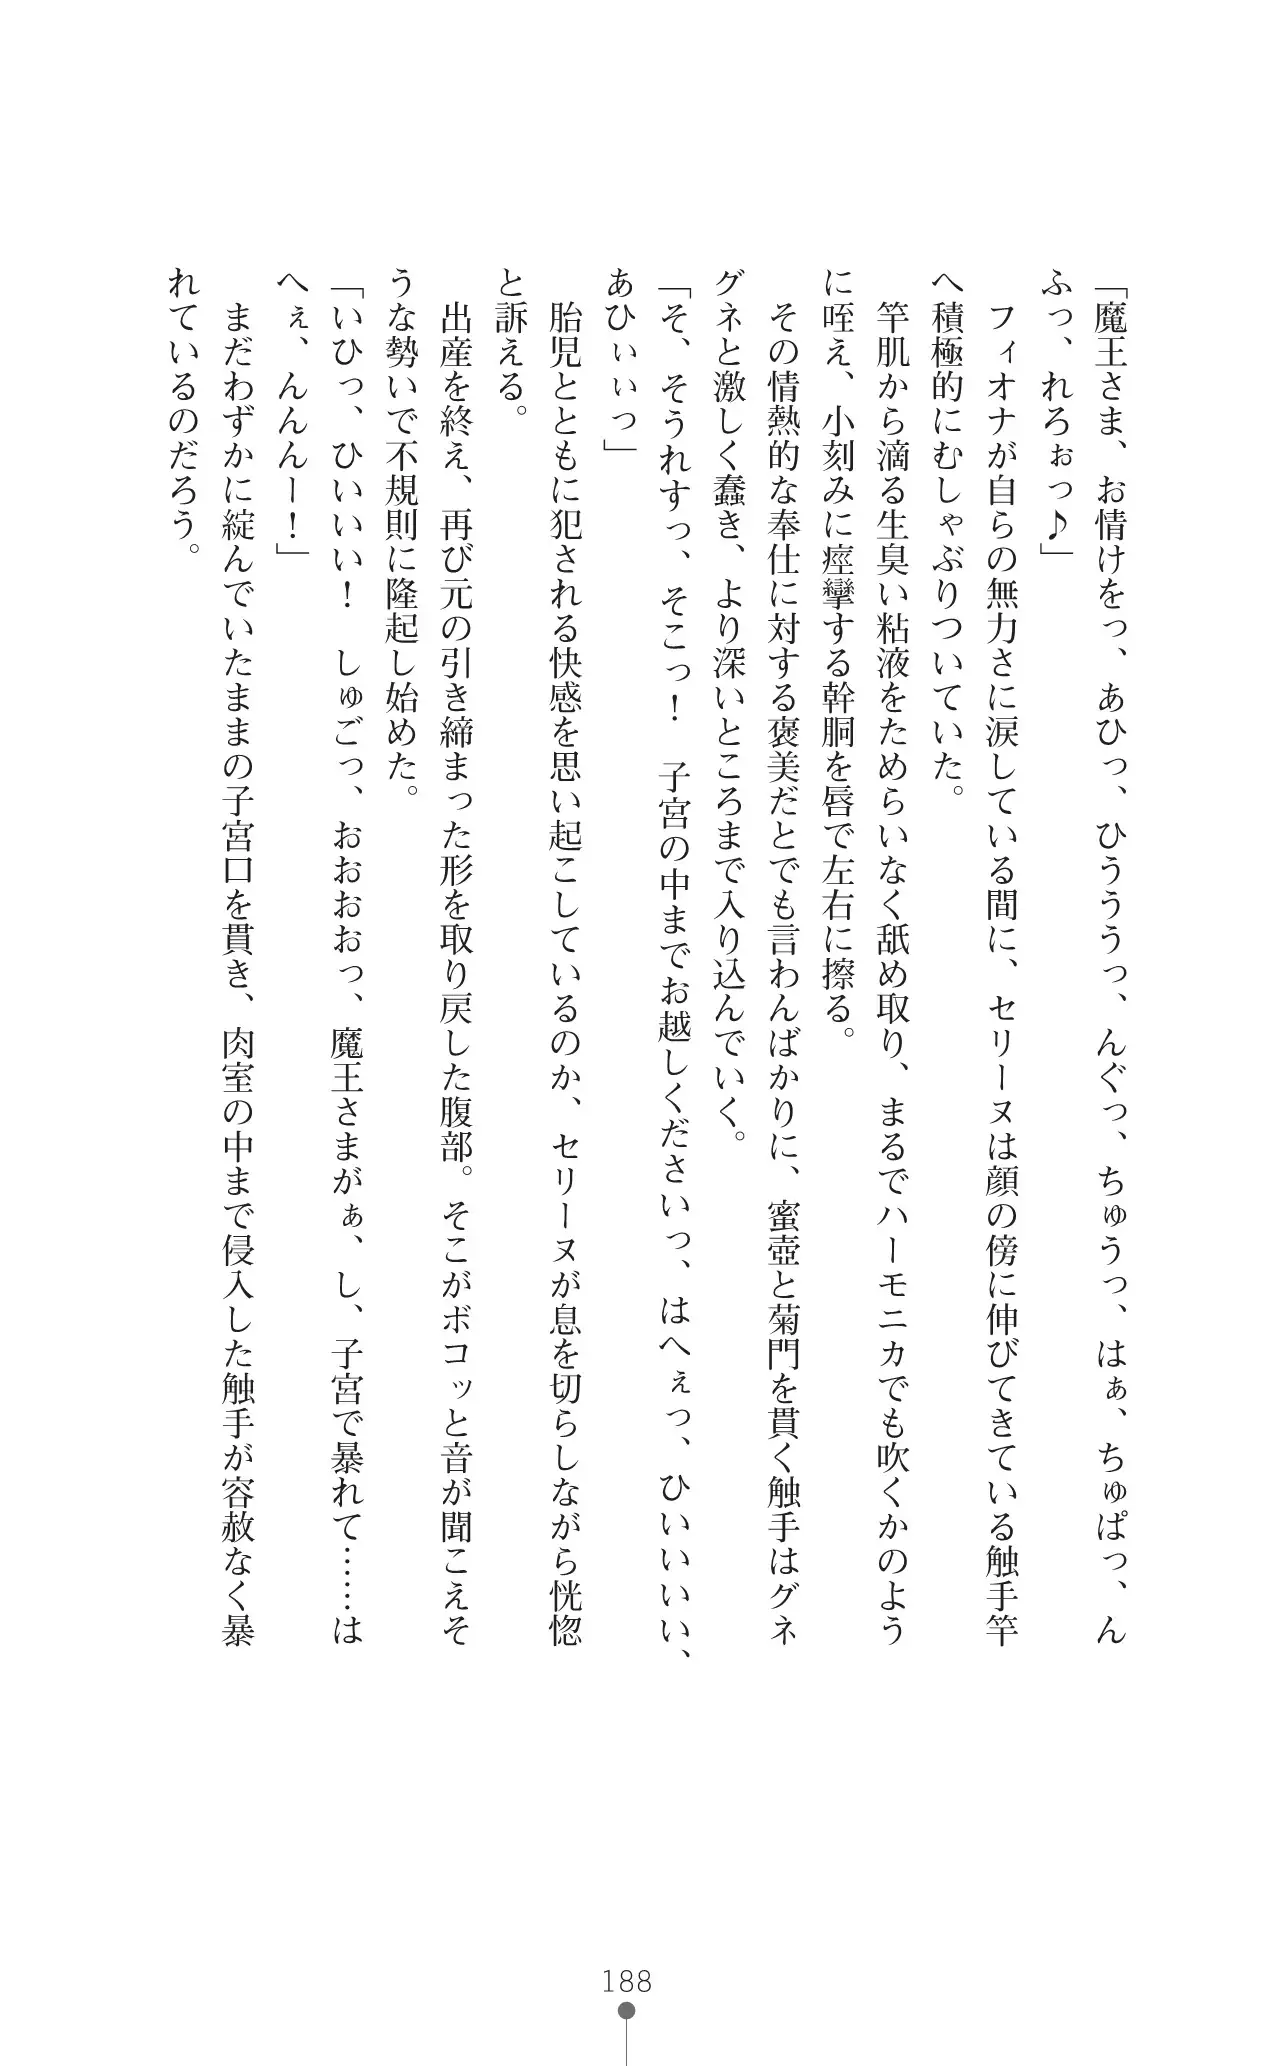 「魔王さま、お情けをっ、あひっ、ひううっ、んぐっ、ちゅうっ、はぁ、ちゅぱっ、ん
ふっ、れろぉっ♪」
フィオナが自らの無力さに涙している間に、セリーヌは顔の傍に伸びてきている触手竿
へ積極的にむしゃぶりついていた。
竿肌から滴る生臭い粘液をためらいなく舐め取り、まるでハーモニカでも吹くかのよう
に咥え、小刻みに痙攣する幹胴を唇で左右に擦る。
その情熱的な奉仕に対する褒美だとでも言わんばかりに、蜜壺と菊門を貫く触手はグネ
グネと激しく蠢き、より深いところまで入り込んでいく。
「そ、そうれすっ、そこっ！　子宮の中までお越しくださいっ、はへぇっ、ひいいいい、
あひぃぃっ」
胎児とともに犯される快感を思い起こしているのか、セリーヌが息を切らしながら恍惚
と訴える。
出産を終え、再び元の引き締まった形を取り戻した腹部。そこがボコッと音が聞こえそ
うな勢いで不規則に隆起し始めた。
「いひっ、ひいいい！　しゅごっ、おおおおっ、魔王さまがぁ、し、子宮で暴れて……は
へぇ、んんんー！」
まだわずかに綻んでいたままの子宮口を貫き、肉室の中まで侵入した触手が容赦なく暴
れているのだろう。
188